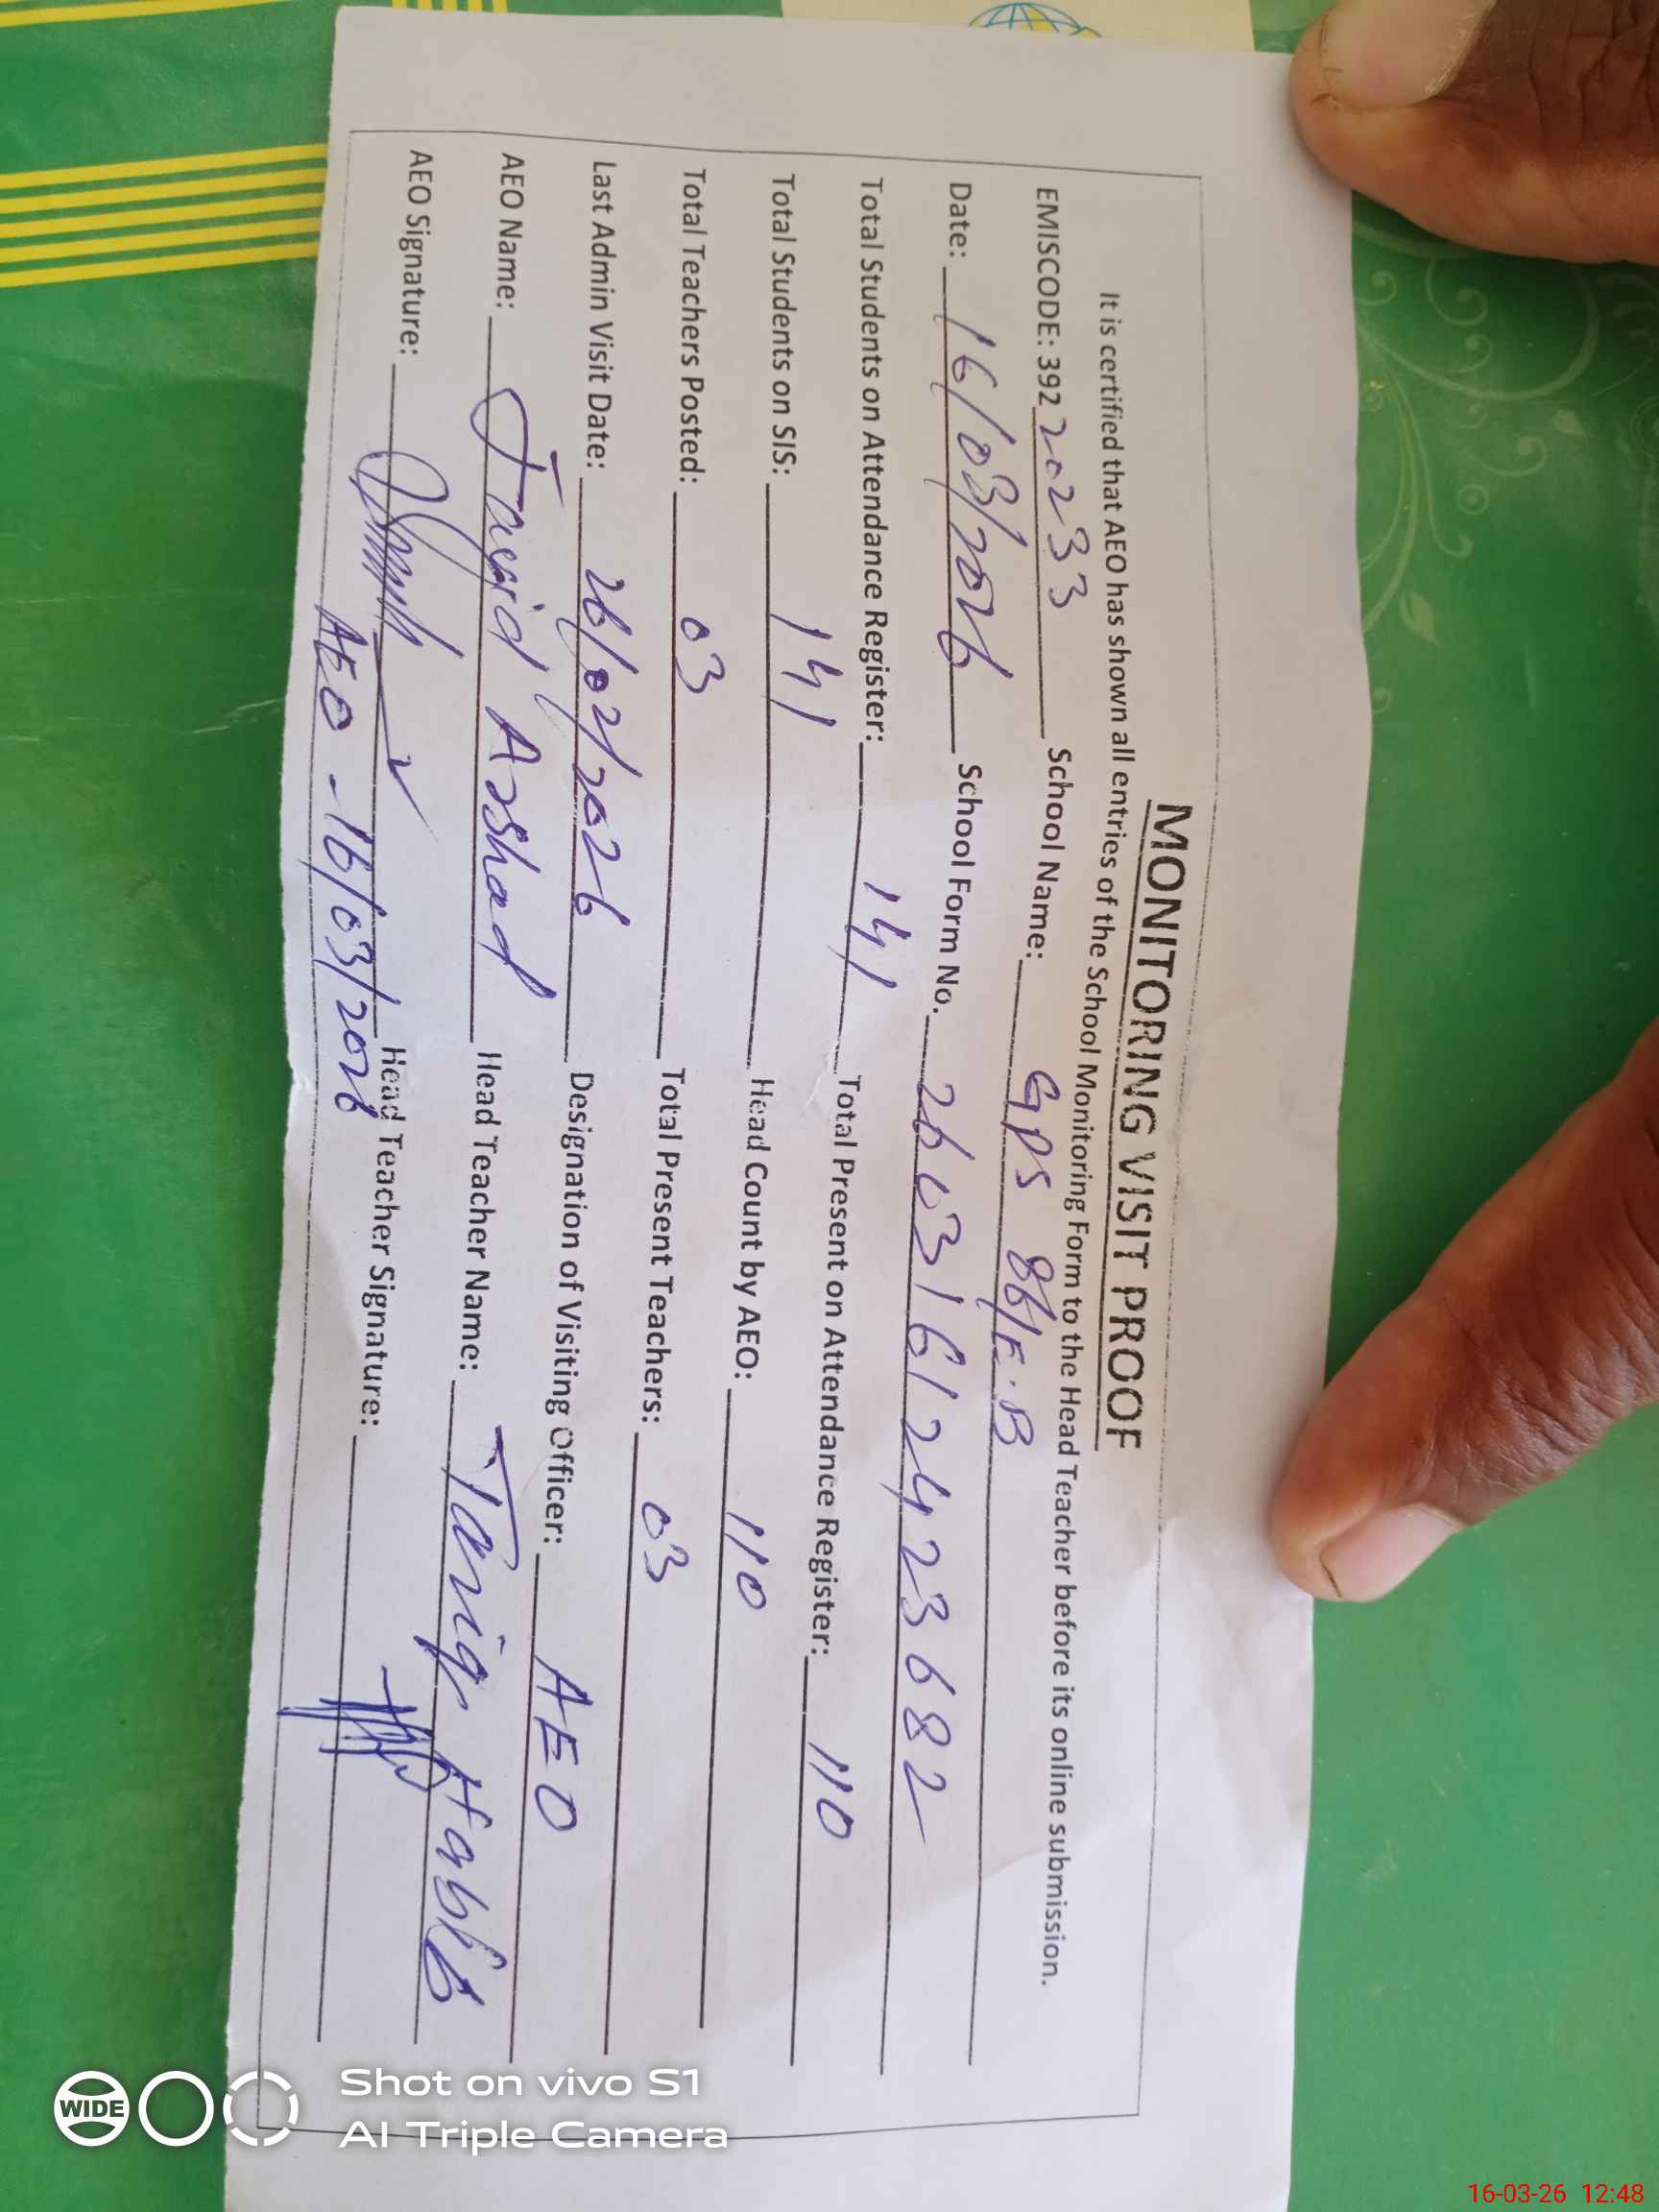 MONITORING VISIT PROOF
It is certified that AEO has shown all entries of the School Monitoring Form to the Head Teacher before its online submission.
EMISCODE: 39220233 School Name: GPS 86/E.B
Date: 16/03/2026 School Form No. 2603161242368 2
Total Students on Attendance Register: 141 Total Present on Attendance Register: 110
Total Students on SIS: 141 Head Count by AEO: 110
Total Teachers Posted: 03 Total Present Teachers: 03
Last Admin Visit Date: 26/02/2026 Designation of Visiting Officer: AEO
AEO Name: Javaid Arshad Head Teacher Name: Tariq Habib
AEO Signature: Head Teacher Signature:
AEO - 16/03/2026
Shot on vivo S1
AI Triple Camera
WIDE
16-03-26 12:48